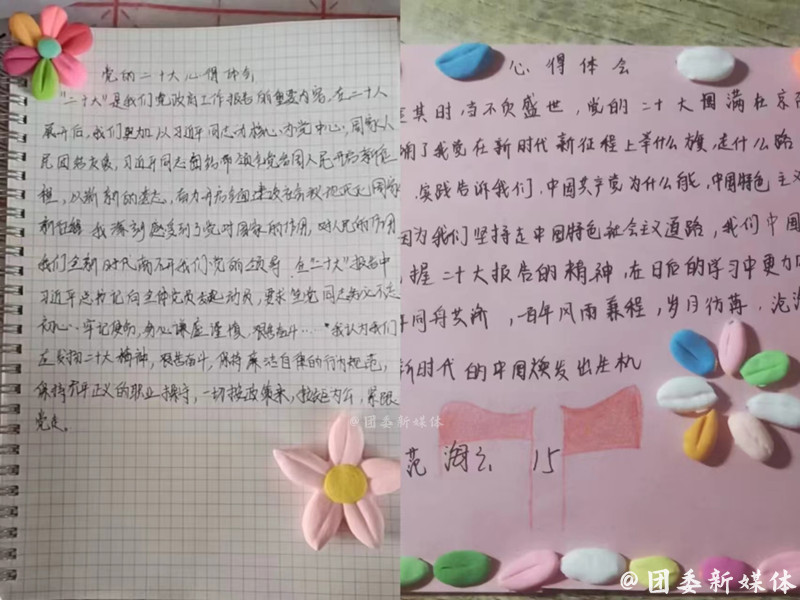 党的二十大心得体会
"二十大"是我们党政府工作报告的重要内容,在二十大
展开后,我们更加以习近平同志为核心,为党中心,国家人
民团结友爱,习近平同志团结带领全党全国人民开启新征
程,以崭新的姿态,奋力开启全面建设社会现代化国家
新征程 我深刻感受到了党对国家的作用,对人民的作用
我们全新时代离不开我们党的领导 在"二十大"报告中
习近平总书记向全体党员发起动员,要求全党同志务必不忘
初心、牢记使命,务必谦虚谨慎、艰苦奋斗……"我认为我们
应发扬二十大精神,艰苦奋斗,保持廉洁自律的行为规范,
保持公平正义的职业操守,一切按政策来,规矩为行,紧跟
党走。
@团委新媒体
心得体会
其时,当不负盛世,党的二十大圆满在京
了我党在新时代新征程上举什么旗,走什么路
实践告诉我们,中国共产党为什么能,中国特色主义
因为我们坚持走中国特色社会主义道路,我们中国
握二十大报告的精神,在日后的学习中更加
同舟共济,一百年风雨兼程,岁月彷薄,沧
新时代的中国焕发出生机
范 15
@团委新媒体